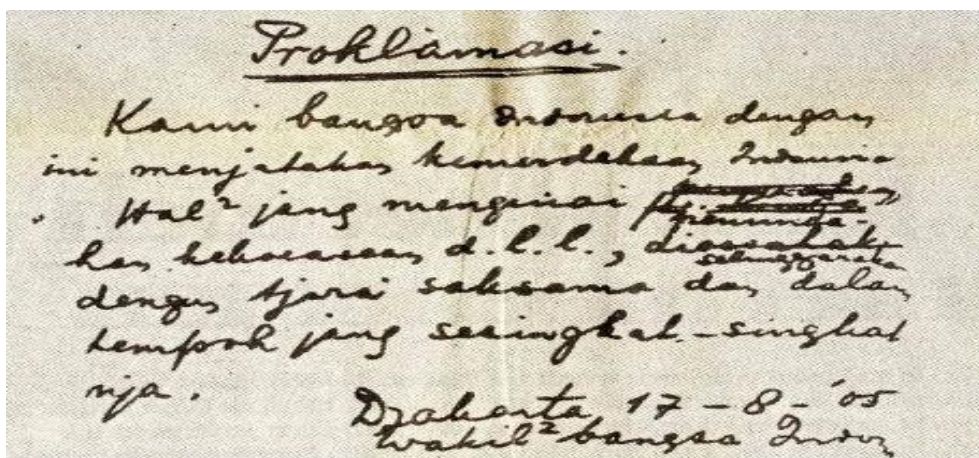 Proklamasi.
Kami bangsa Indonesia dengan
ini menjatakan kemerdekaan Indonesia
Hal² jang mengenai
kan kekoeasaan d.l.l.,
dengan tjara saksama dan dalam
tempoh jang sesingkat-singkat
nja.
Djakarta 17 - 8 - '05
Wakil² bangsa Indon